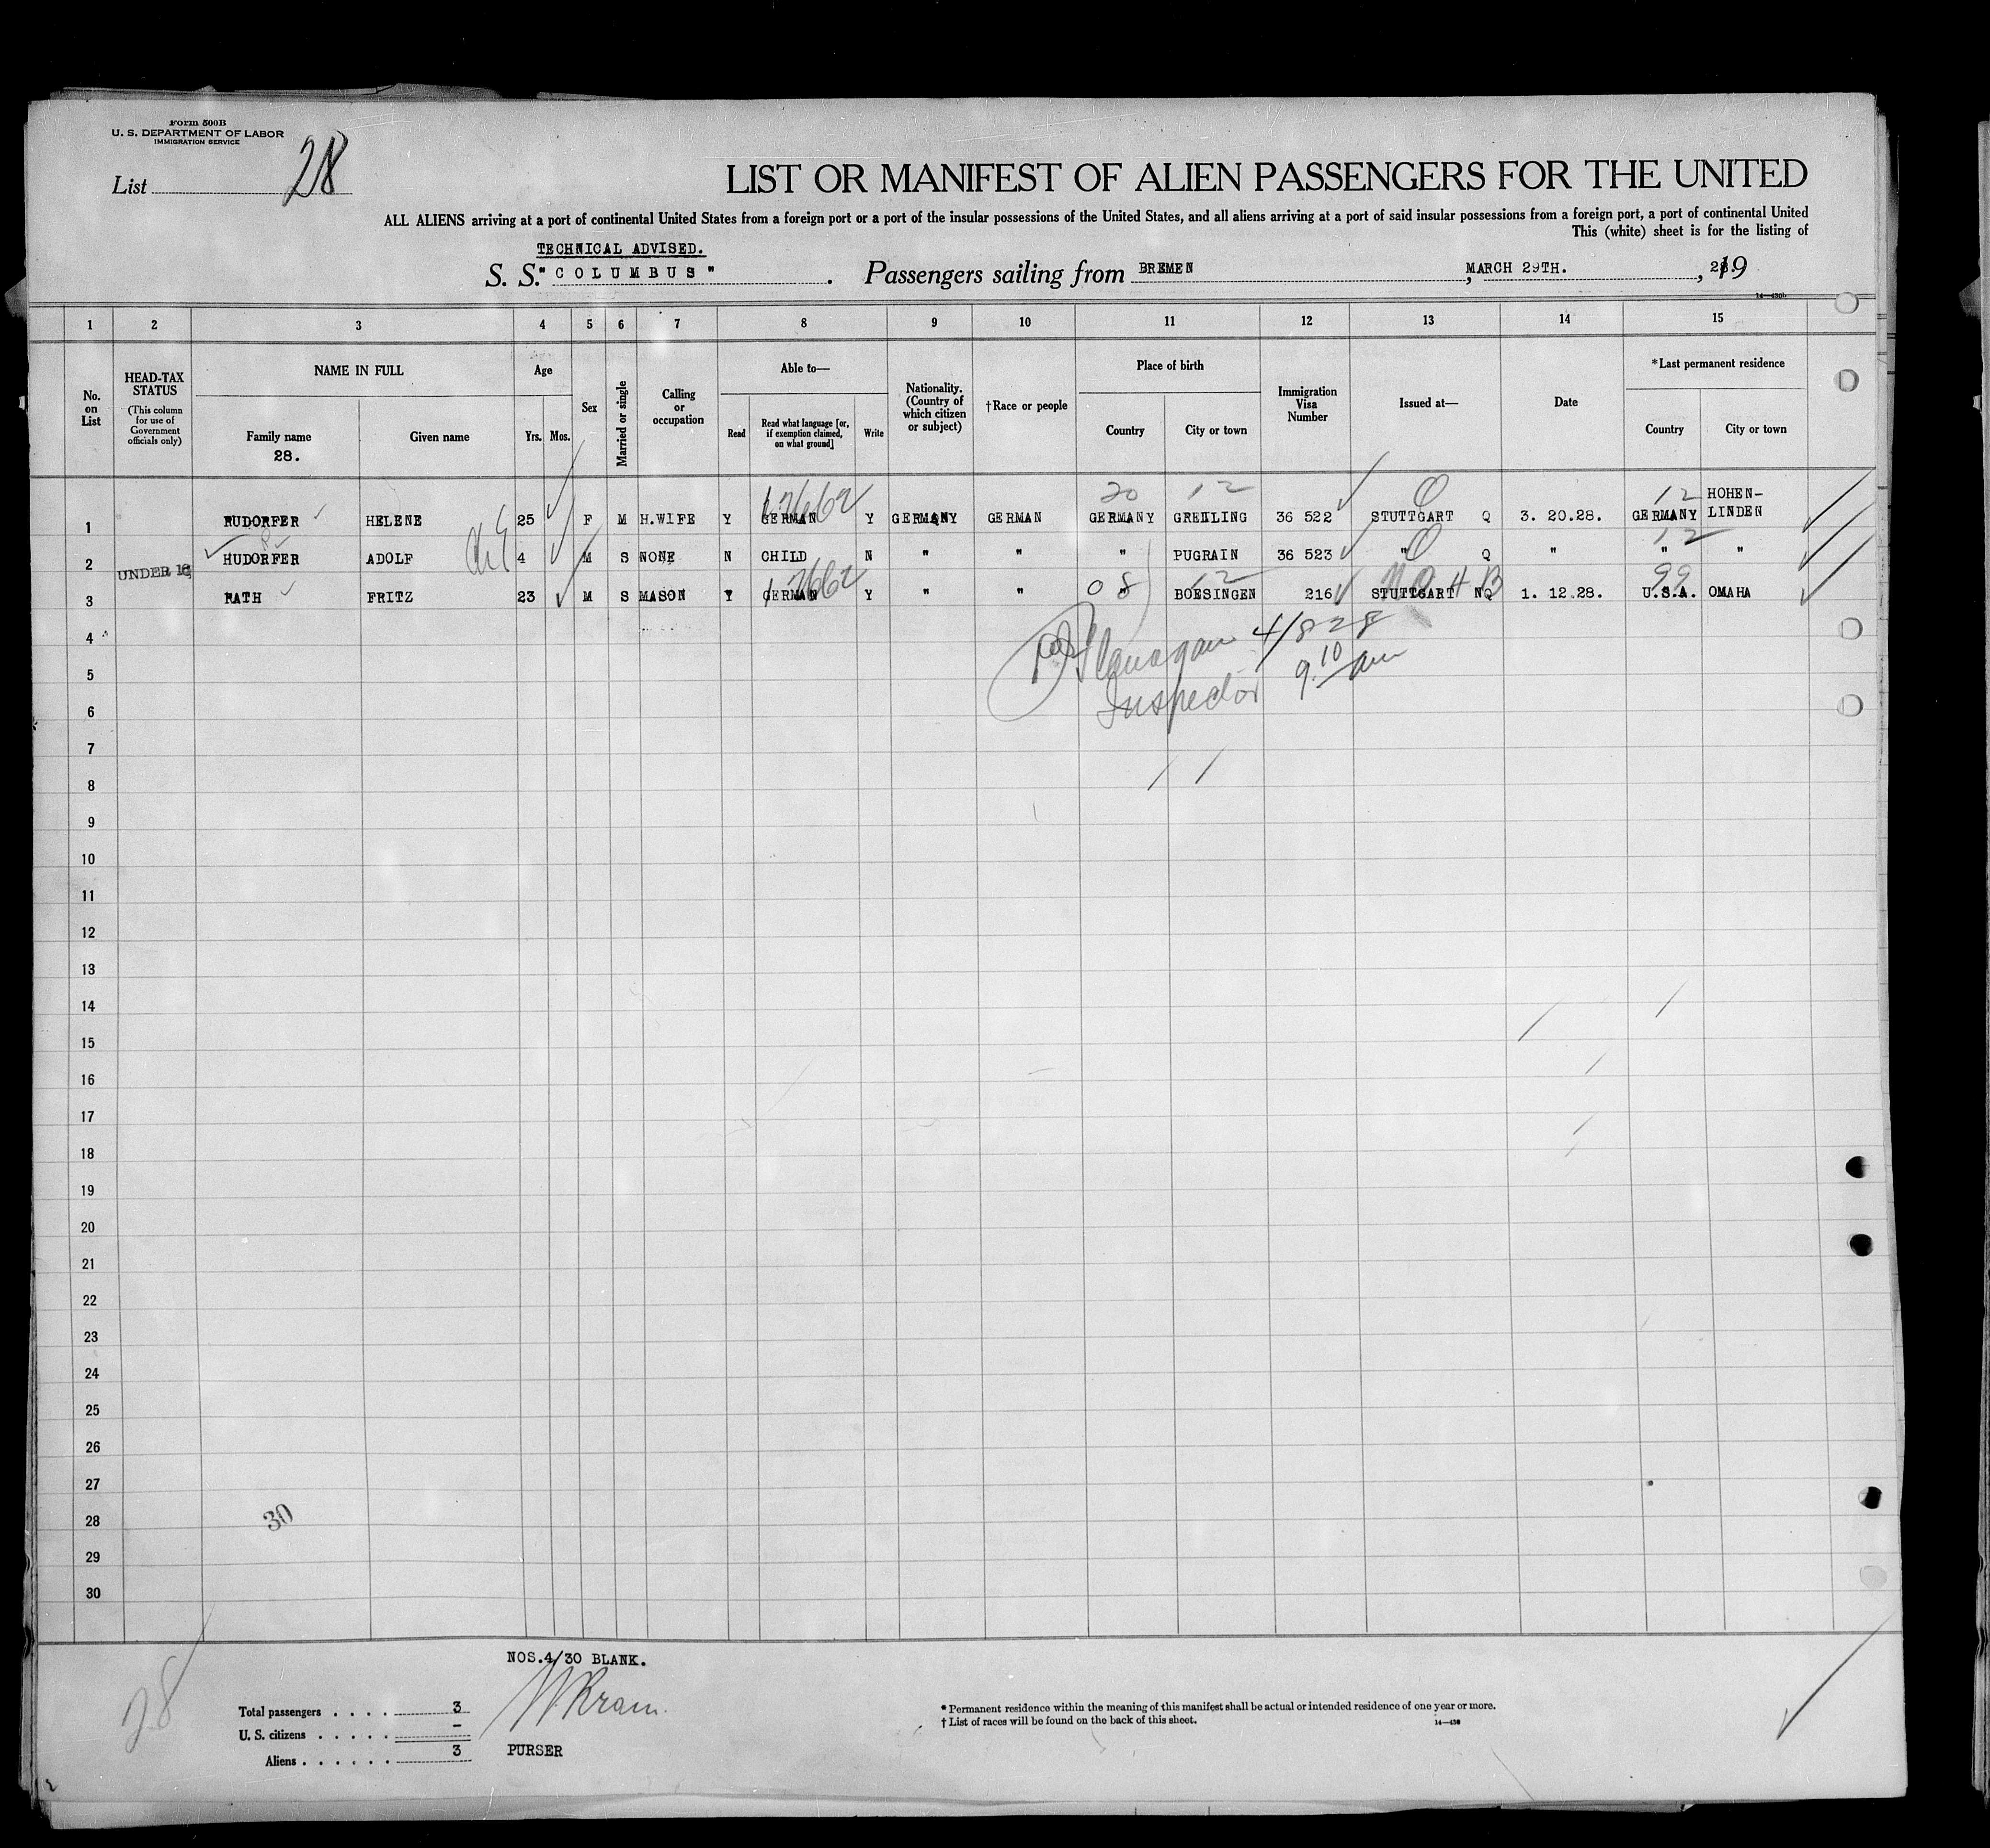 Form 500B
U. S. DEPARTMENT OF LABOR
IMMIGRATION SERVICE
List 28
LIST OR MANIFEST OF ALIEN PASSENGERS FOR THE UNITED
ALL ALIENS arriving at a port of continental United States from a foreign port or a port of the insular possessions of the United States, and all aliens arriving at a port of said insular possessions from a foreign port, a port of continental United
This (white) sheet is for the listing of
TECHNICAL ADVISED.
S. S. "COLUMBUS". Passengers sailing from BREMEN, MARCH 29TH., 28. 19
14—430b
1 2 3 4 5 6 7 8 9 10 11 12 13 14 15
No. on List
HEAD-TAX STATUS (This column for use of Government officials only)
NAME IN FULL
Family name
28.
Given name
Age
Yrs. Mos.
Sex
Married or single
Calling or occupation
Able to—
Read
Read what language [or, if exemption claimed, on what ground]
Write
Nationality. (Country of which citizen or subject)
†Race or people
Place of birth
Country
City or town
Immigration Visa Number
Issued at—
Date
*Last permanent residence
Country
City or town
20 12 12 HOHEN-
1 RUDORFER HELENE 25 F M H.WIFE Y GERMAN Y GERMANY GERMAN GERMANY GREILING 36 522 STUTTGART Q 3. 20.28. GERMANY LINDEN
12
2 UNDER 16 HUDORFER ADOLF 4 M S NONE N CHILD N " " " PUGRAIN 36 523 " Q " " "
12 99
3 RATH FRITZ 23 M S MASON Y GERMAN Y " " 08 " BOESINGEN 216 STUTTGART NQ 1. 12.28. U.S.A. OMAHA
4
Flanagan 4/8 28
5
9.10 am
6
Inspector
7
8
9
10
11
12
13
14
15
16
17
18
19
20
21
22
23
24
25
26
27
28
30
29
30
NOS.4/30 BLANK.
28
Total passengers . . . . 3
U. S. citizens . . . . . –
Aliens . . . . . . 3
PURSER
* Permanent residence within the meaning of this manifest shall be actual or intended residence of one year or more.
† List of races will be found on the back of this sheet.
14—430